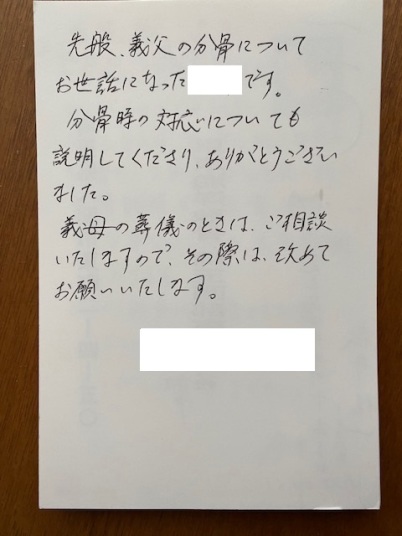 先般、義父の分骨について
お世話になった です。
分骨時の対応についても
説明してくださり、ありがとうござい
ました。
義母の葬儀のときは、ご相談
いたしますので、その際は、改めて
お願いいたします。